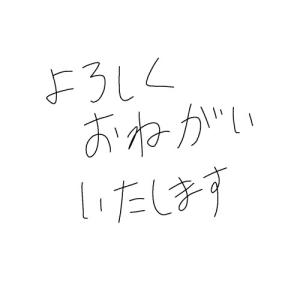 よろしく
おねがい
いたします